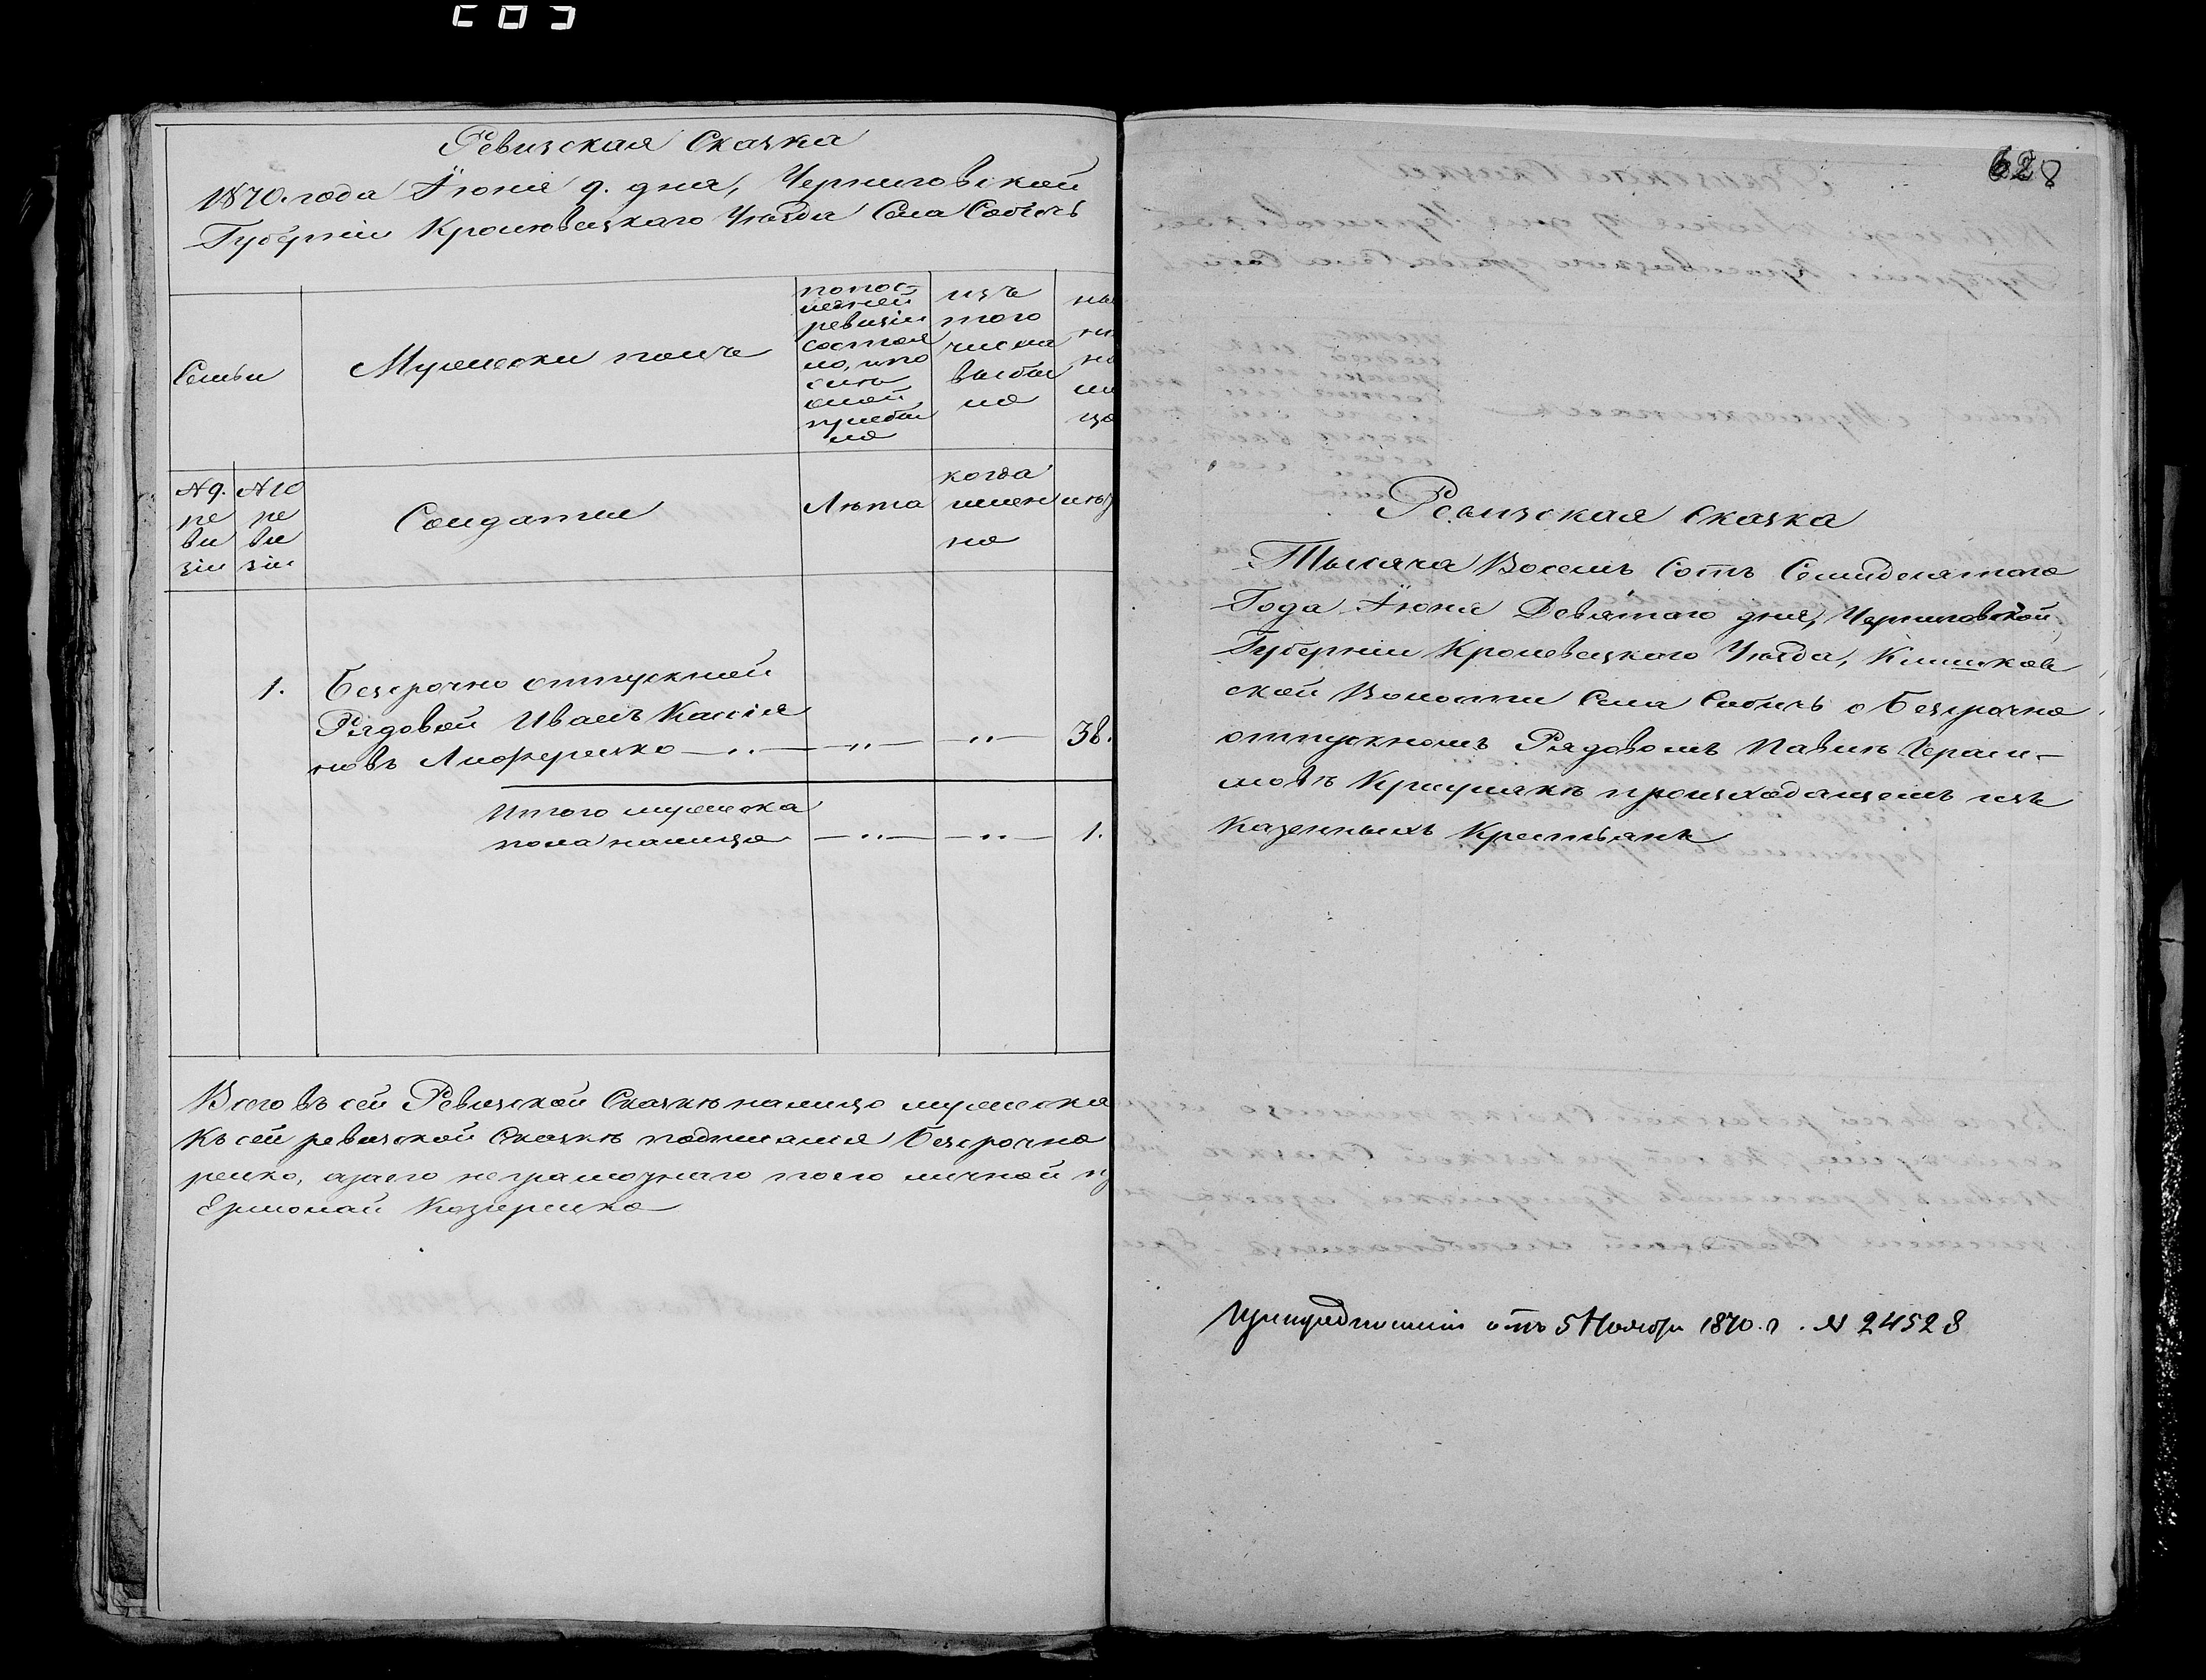 Ревизская Сказка
1870. года Іюня 9. дня, Черниговской
Губерніи Кролевецкаго Уѣзда Села Собичъ
Семьи
Мужеска полъ
попос-
лѣдней
ревизіи
состоя
ло, и по
слѣ
оной
прибы
ло
изъ
того
числа
выбы
ло
ны
нѣ
на
ли
цо
№ 9.
ре
ви
зіи
№ 10
ре
ви
зіи
Солдатъ
Лѣта
когда
имен
но
лѣт
1. Безсрочно отпускной
Рядовой Иванъ Касья
новъ Лифиренко — ·· — — ·· — — ·· — 38.
Итого мужеска
пола налицо — ·· — — ·· — 1.
Всего въ сей Ревизской Сказкѣ налицо мужеска
Къ сей ревизской Сказкѣ подписался Безсрочно
ренко, а за его неграмотнаго по его личной п
Ермолай Козиренко
628
Ревизская Сказка
Тысяча Восемъ Сотъ Семидесятаго
Года Іюня Девятаго дня, Черниговской
Губерніи Кролевецкаго Уѣзда, Клишков
ской Волости Села Собичъ о Безсрочно
отпускномъ Рядовомъ Павлѣ Гераси-
мовѣ происходящемъ изъ
Казенныхъ Крестьянъ
При предписаніи отъ 5 Ноября 1870. г. № 24528